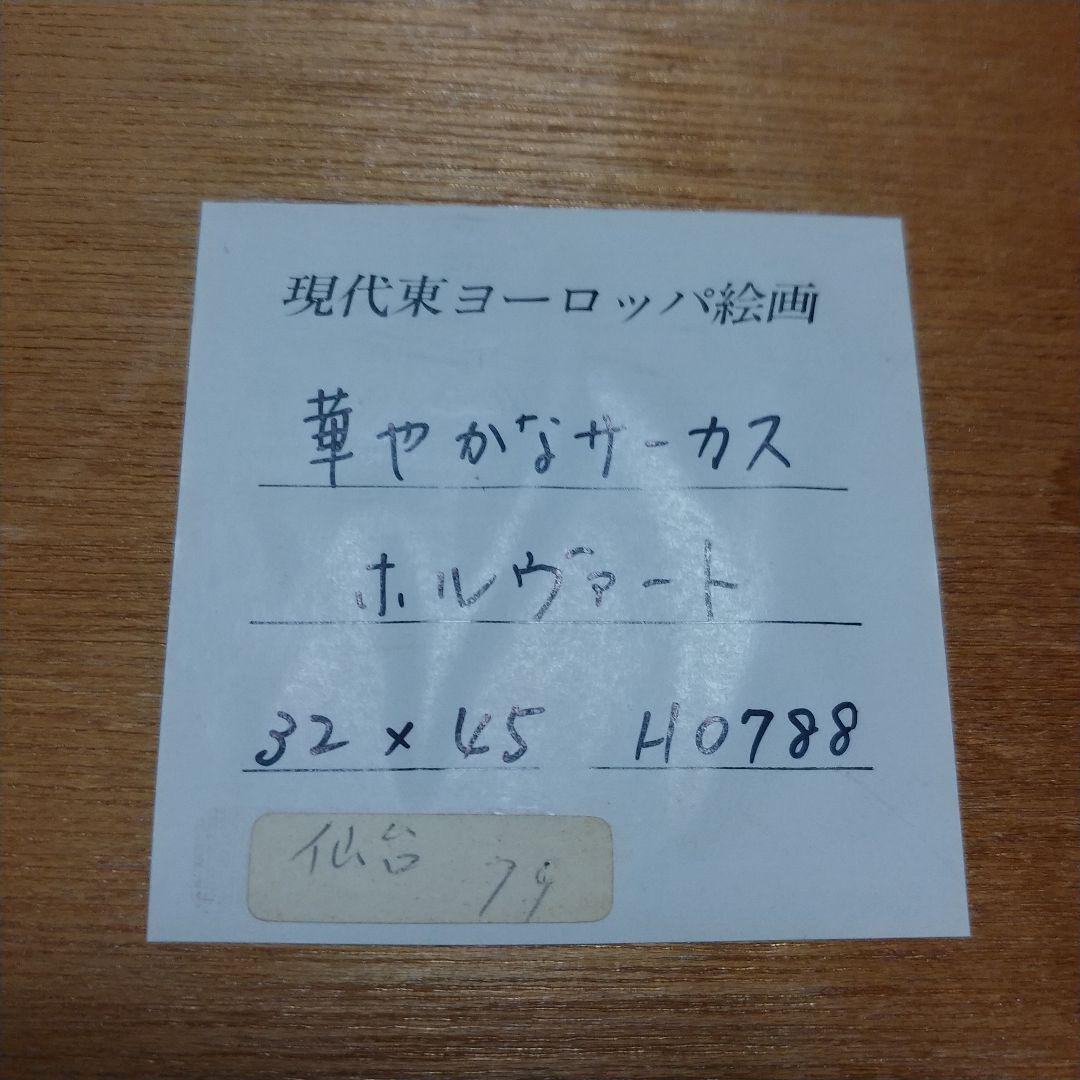 現代東ヨーロッパ絵画
華やかなサーカス
ホルヴァート
32 × 45 H0788
仙台 79